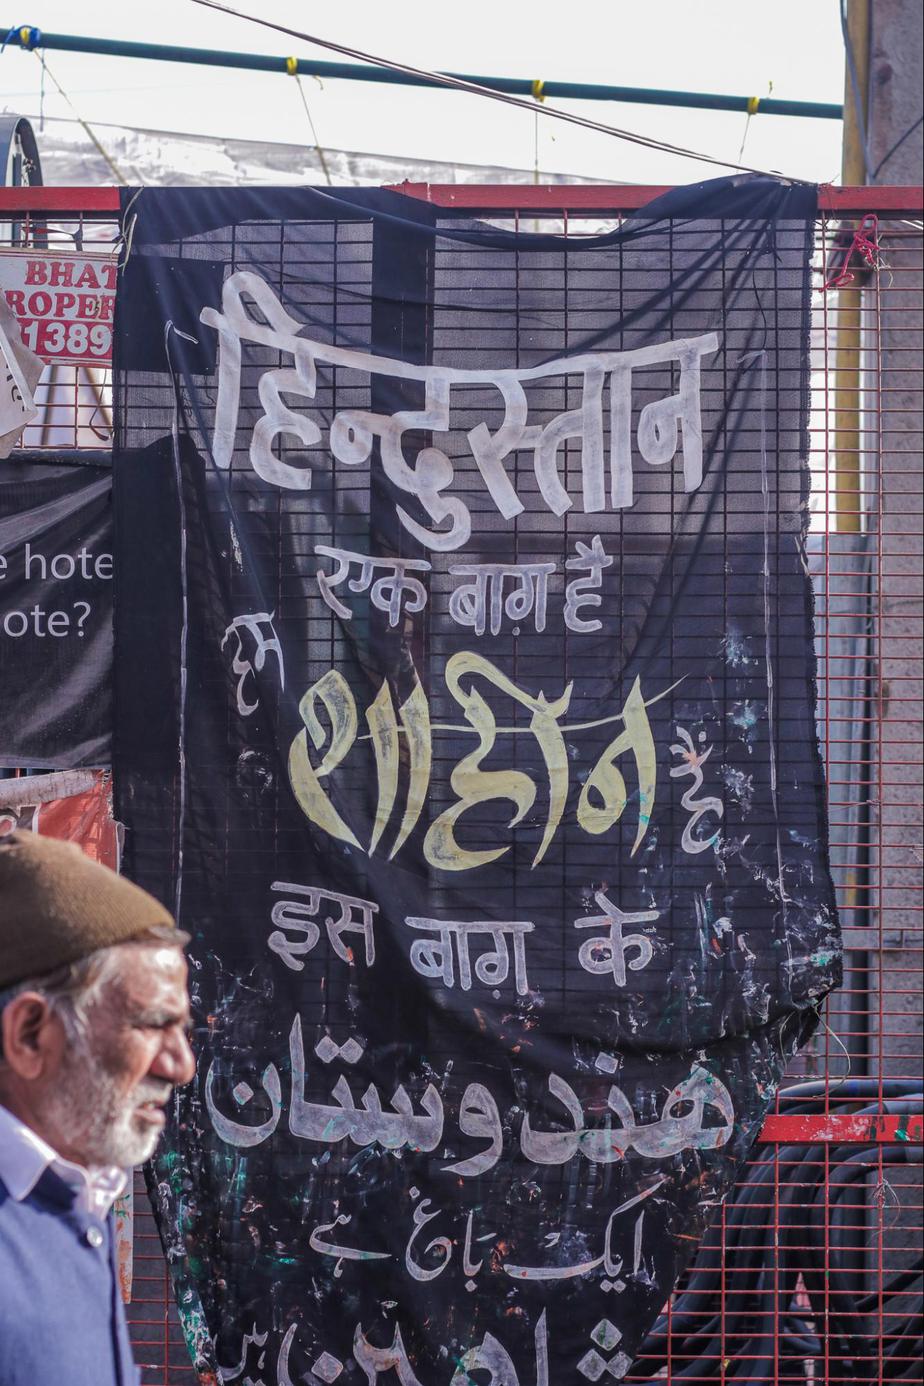 BHAT
ROPER
1389
e hote
ote?
हिन्दुस्तान
एक बाग़ है
हम
शाहीन
हैं
इस बाग़ के
ھندوستان
ایک باغ ہے
شاہین
ہیں